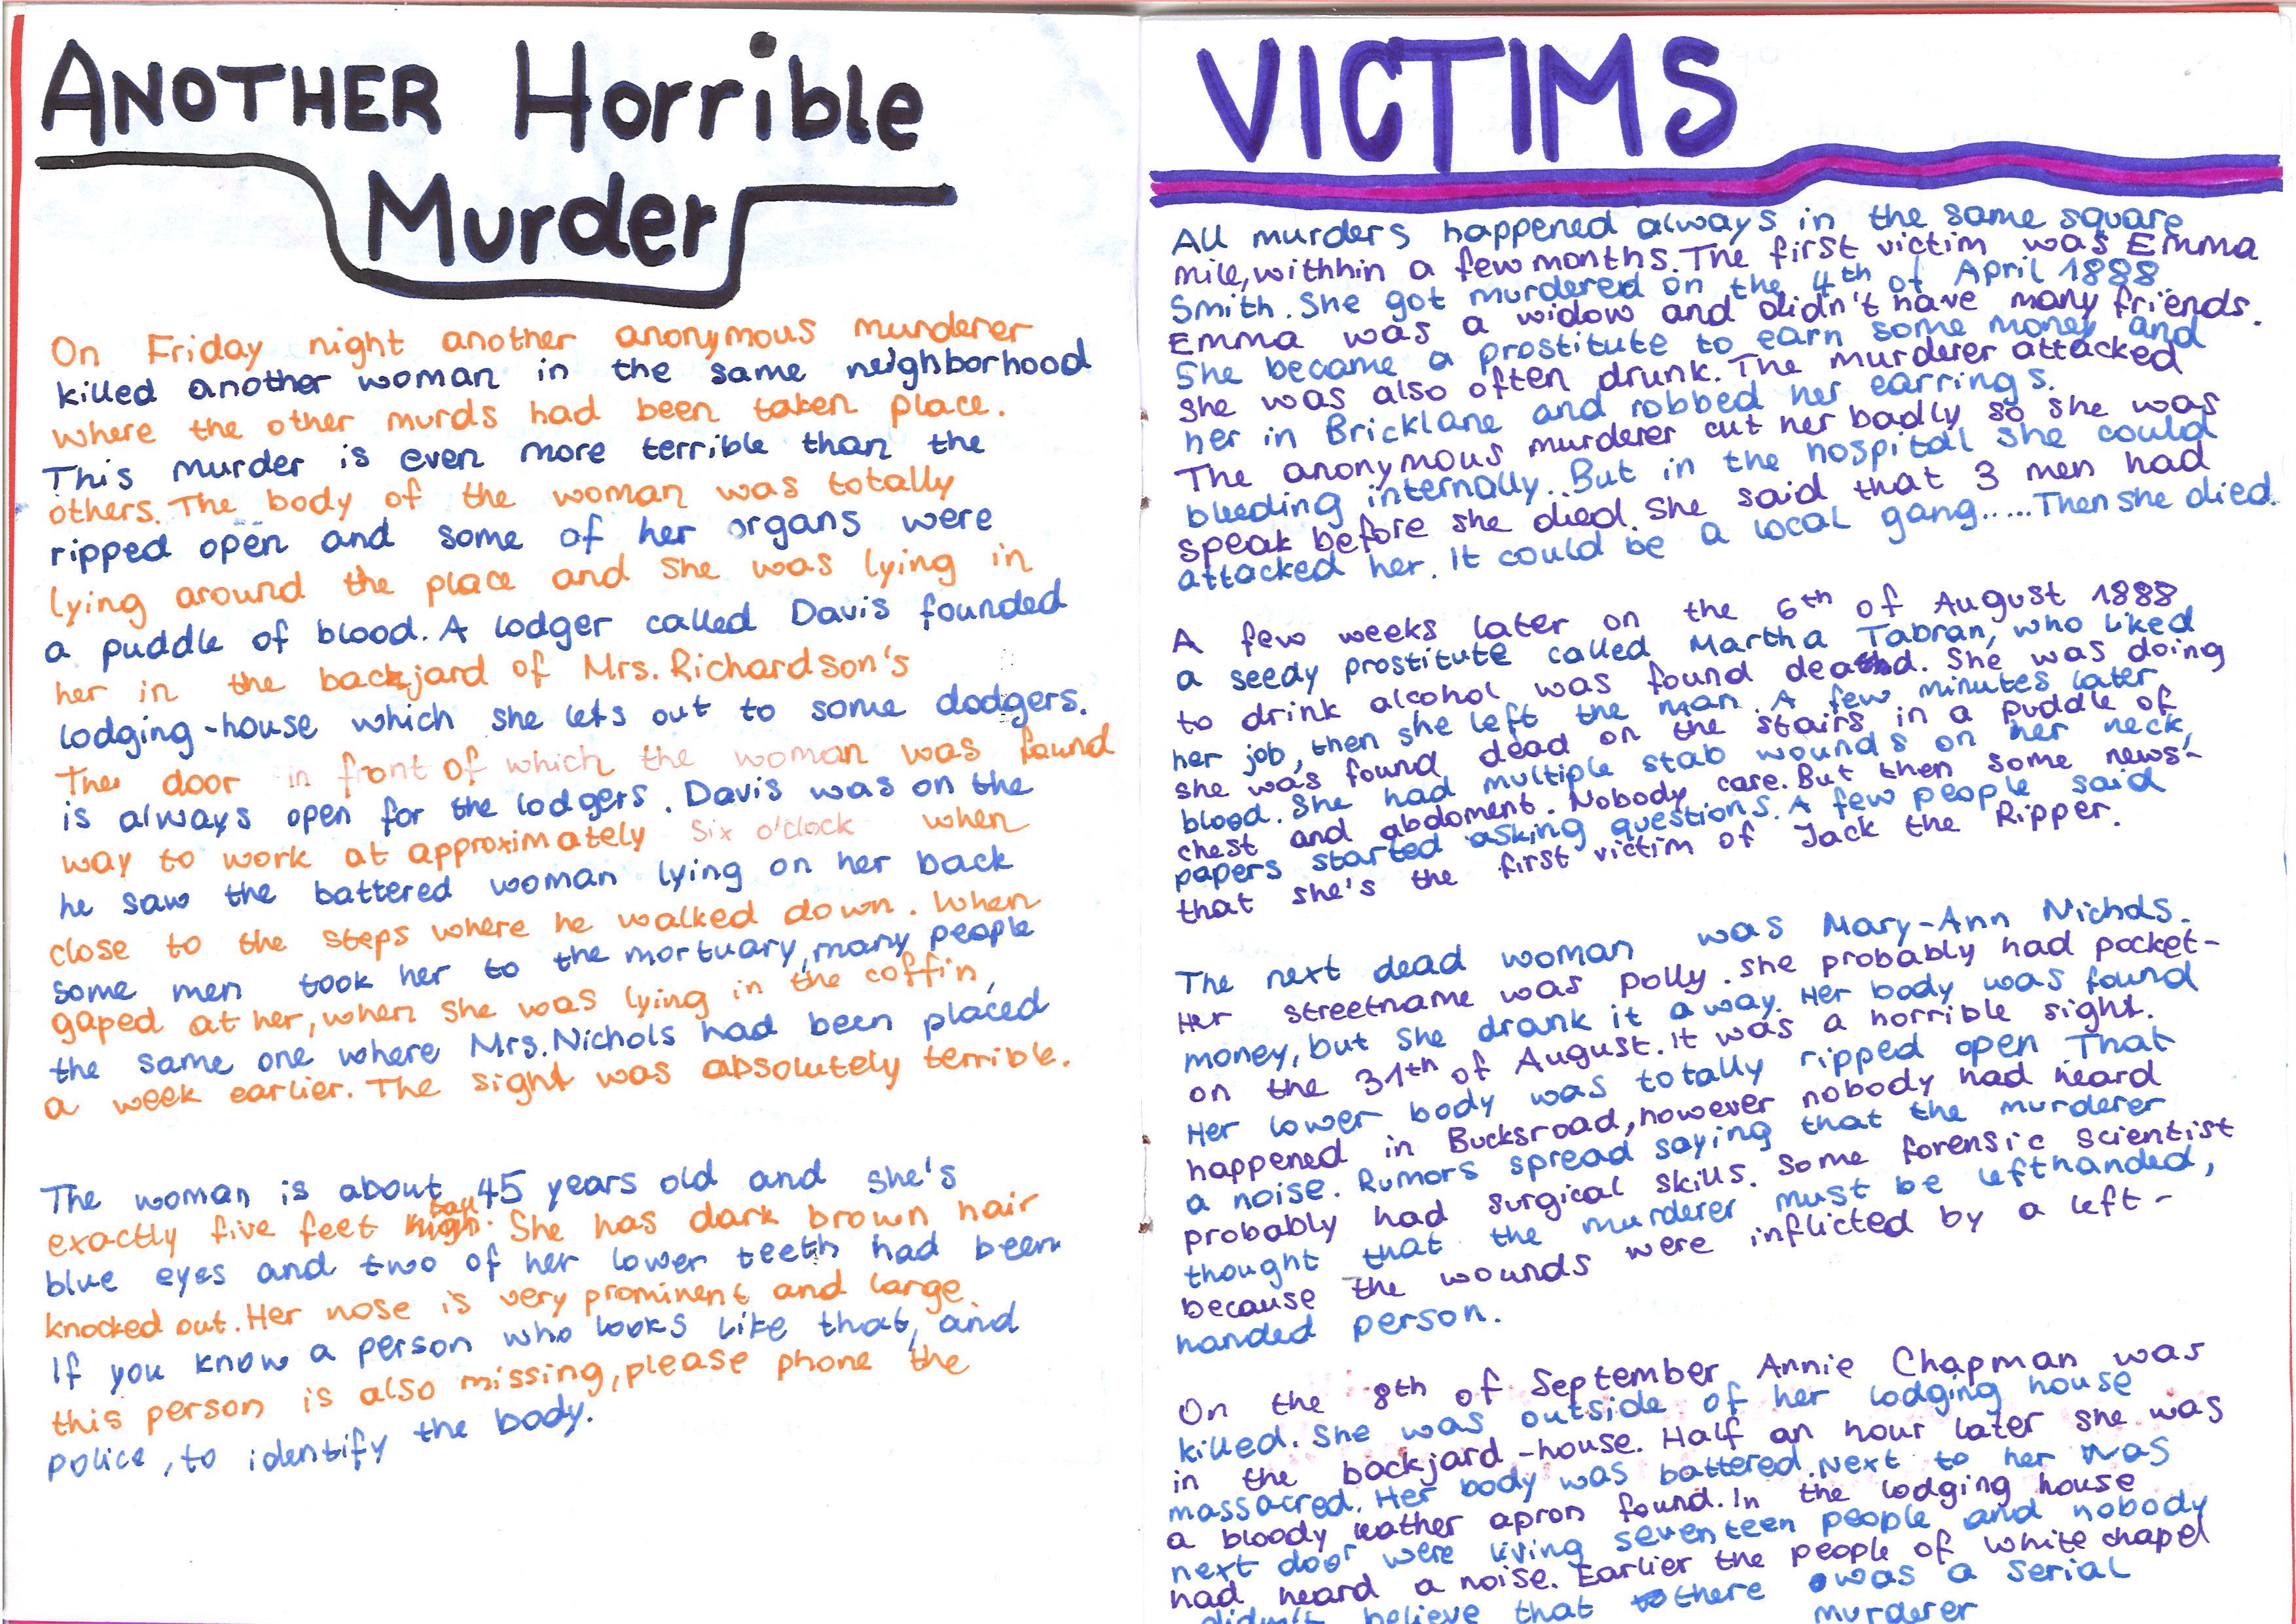 ANOTHER Horrible
Murder
On Friday night another anonymous murderer
killed another woman in the same neighborhood
where the other murds had been taken place.
This murder is even more terrible than the
others. The body of the woman was totally
ripped open and some of her organs were
lying around the place and she was lying in
a puddle of blood. A lodger called Davis founded
her in the backjard of Mrs. Richardson's
lodging-house which she lets out to some dodgers.
The door in front of which the woman was found
is always open for the lodgers. Davis was on the
way to work at approximately six o'clock when
he saw the battered woman lying on her back
close to the steps where he walked down. When
some men took her to the mortuary, many people
gaped at her, when she was lying in the coffin,
the same one where Mrs. Nichols had been placed
a week earlier. The sight was absolutely terrible.
The woman is about 45 years old and she's
exactly five feet tall. She has dark brown hair
blue eyes and two of her lower teeth had been
knocked out. Her nose is very prominent and large.
If you know a person who looks like that, and
this person is also missing, please phone the
police, to identify the body.
VICTIMS
All murders happened always in the same square
mile, withhin a few months. The first victim was Emma
Smith. She got murdered on the 4th of April 1888.
Emma was a widow and didn't have many friends.
She became a prostitute to earn some money and
she was also often drunk. The murderer attacked
her in Bricklane and robbed her earrings.
The anonymous murderer cut her badly so she was
bleeding internally. But in the hospital she could
speak before she died. She said that 3 men had
attacked her. It could be a local gang..... Then she died.
A few weeks later on the 6th of August 1888
a seedy prostitute called Martha Tabran, who liked
to drink alcohol was found dead. She was doing
her job, then she left the man. A few minutes later
she was found dead on the stairs in a puddle of
blood. She had multiple stab wounds on her neck,
chest and abdoment. Nobody care. But then some news-
papers started asking questions. A few people said
that she's the first victim of Jack the Ripper.
The next dead woman was Mary-Ann Nichols.
Her streetname was Polly. she probably had pocket-
money, but she drank it away. Her body was found
on the 31th of August. It was a horrible sight.
Her lower body was totally ripped open That
happened in Bucksroad, however nobody had heard
a noise. Rumors spread saying that the murderer
probably had surgical skills. Some forensic scientist
thought that the murderer must be lefthanded,
because the wounds were inflicted by a left-
handed person.
On the 8th of September Annie Chapman was
killed. She was outside of her lodging house
in the backjard-house. Half an hour later she was
massacred. Her body was battered. Next to her was
a bloody leather apron found. In the lodging house
next door were living seventeen people and nobody
had heard a noise. Earlier the people of white chapel
didn't believe that there was a serial
murderer